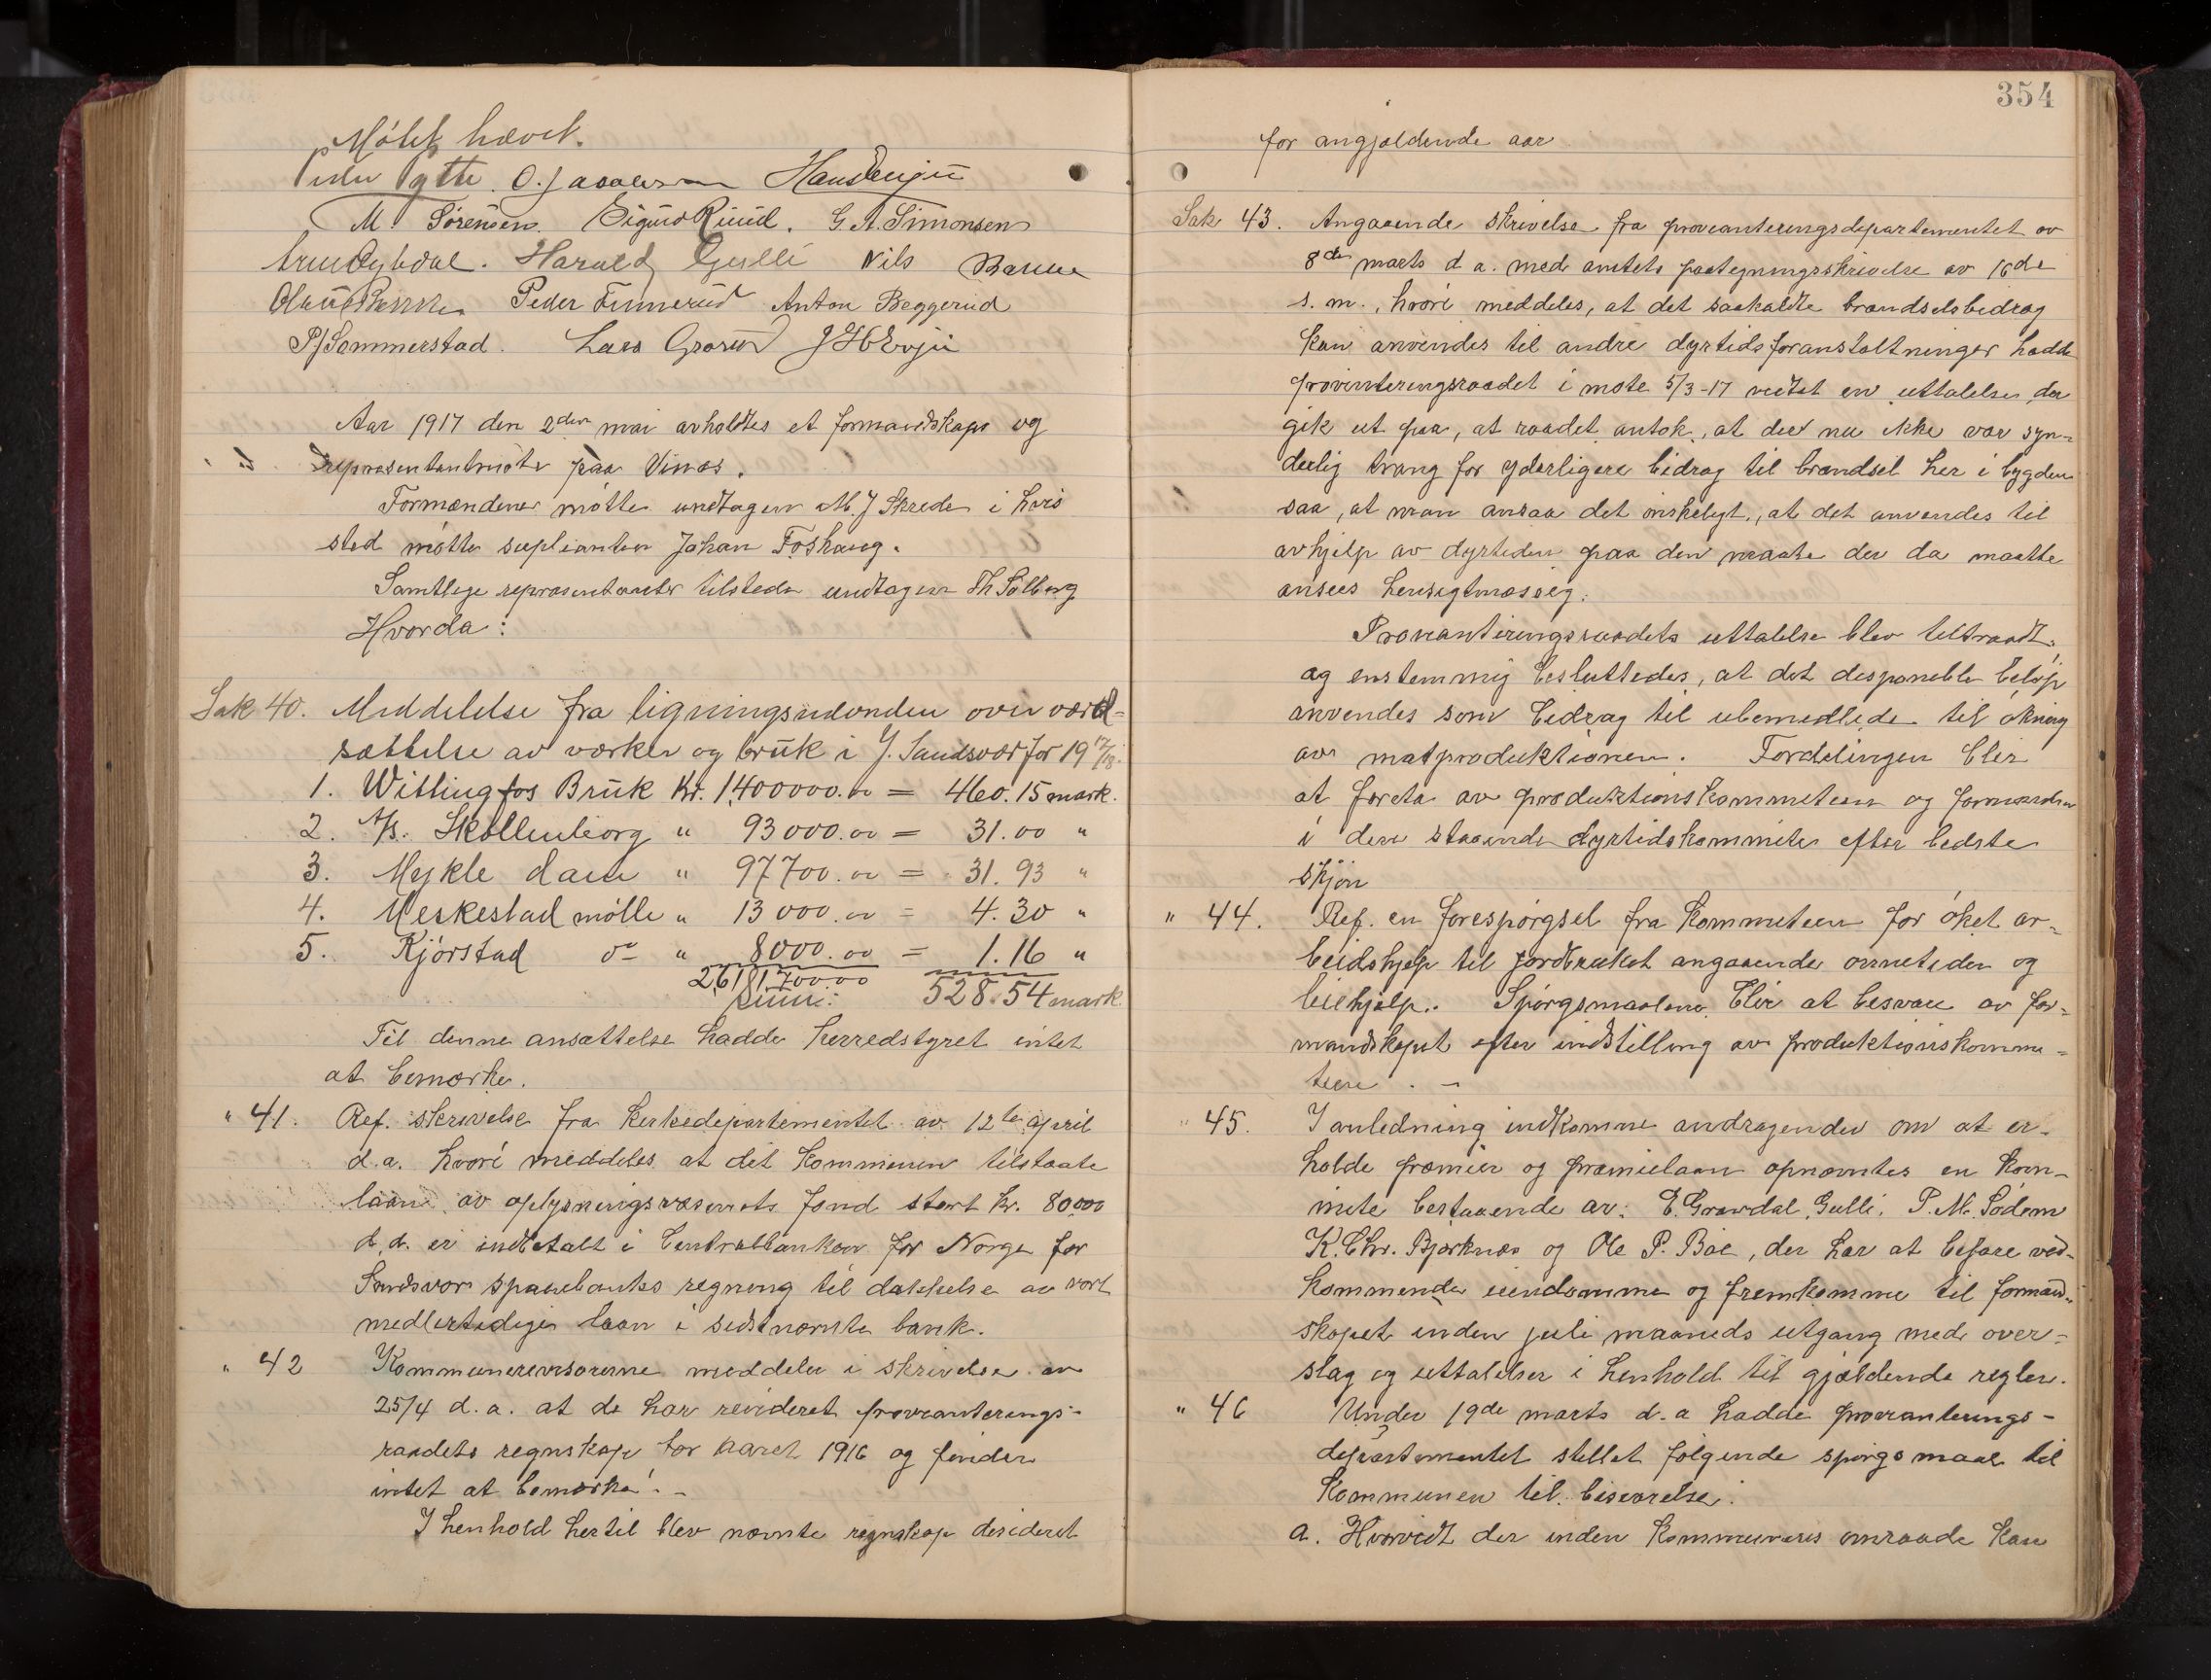 Møtet hævet.
Peder Pytte. O. Jacobsen Hans Evju
M Sørensen. Sigurd Ruud. G. A. Simonsen
Harald Gulli Nils
Peder Finnerud Anton Beggerud
P/Sommerstad. Lars Grosvold J H Evju
Aar 1917 den 2den mai avholdtes et formandskaps og
repræsentantmøte paa Vinæs.
Formændene møtte undtagen M. J Skrede i hvis
sted møtte suplianten Johan Foshaug.
Samtlige repræsentanter tilstede undtagen Th Solberg
Hvorda:
Sak 40. Meddelelse fra ligningsnævnden over værd-
sættelse av værker og bruk i Y. Sandsvær for 19 17/18.
1. Wittingfos Bruk Kr. 1,400000.00 = 460.15 mark.
2. A/S. Skollenborg " 93000.00 = 31.00 "
3. Mykle dam " 97700.00 = 31.93 "
4. Meskestad mølle " 13000.00 = 4.30 "
5. Kjørstad do " 8000.00 = 1.16 "
Sum: 528.54 mark.
Til denne ansættelse hadde herredstyret intet
at bemærke.
" 41. Ref. skrivelse fra Kirkedepartementet av 12te april
d.a. hvori meddeles at det kommunen tilstaate
laan av oplysningsvæsenets fond stort kr. 80.000
d.d. er indbetalt i Centralbanken for Norge for
Sandsvær sparebanks regning til dækkelse av vort
medlertidige laan i sidstnævnte bank.
" 42 Kommunerevisorerne meddeler i skrivelse av
25/4 d.a. at de har revideret provianterings-
raadets regnskap for aaret 1916 og finder
intet at bemærke. -
I henhold hertil blev nævnte regnskap desideret
354
for angjældende aar
Sak 43. Angaaende skrivelse fra provianteringsdepartementet av
8de marts d a. med amtets paategningsskrivelse av 16de
s.m., hvori meddeles, at det saakaldte brændselsbidrag
kan anvendes til andre dyrtidsforanstaltninger hadde
provianteringsraadet i møte 5/3-17 vedtat en uttalelse der
gik ut paa, at raadet antok, at det nu ikke var syn-
derlig trang for yderligere bidrag til brændsel her i bygden
saa, at man ansaa det ønskeligt, at det anvendes til
avhjelp av dyrtiden paa den maate der da maatte
ansees hensigtmæssig.
Provianteringsraadets uttalelse blev tiltraadt,
og enstemmig besluttedes, at det disponible beløp
anvendes som bidrag til ubemedlede til økning
av matproduktionen. Fordelingen blir
at foreta av produktionskommiteen og formanden
i den staaende dyrtidskommite efter bedste
skjøn
" 44. Ref. en forespørgsel fra kommiteen for øket ar-
beidshjelp til jordbruket angaaende onnetiden og
leiehjelp.. Spørgsmaalene blir at besvare av for-
mandskapet efter indstilling av produktionskommi-
teen. -
" 45. I anledning indkomne andragender om at er-
holde præmier og præmielaan opnævntes en kom-
mite bestaaende av: E. Grawdal, Gulli, P. M. Sødem
K. Chr. Bjørknæs og Ole P. Bøe, der har at befare ved-
kommende eiendomme og fremkomme til formand-
skapet inden juli maaneds utgang med over-
slag og uttalelser i henhold til gjældende regler.
" 46 Under 19de marts d.a hadde provianterings-
departementet stillet følgende spørgsmaal til
kommunen til besvarelse.
a. Hvorvidt der inden kommunens omraade kan